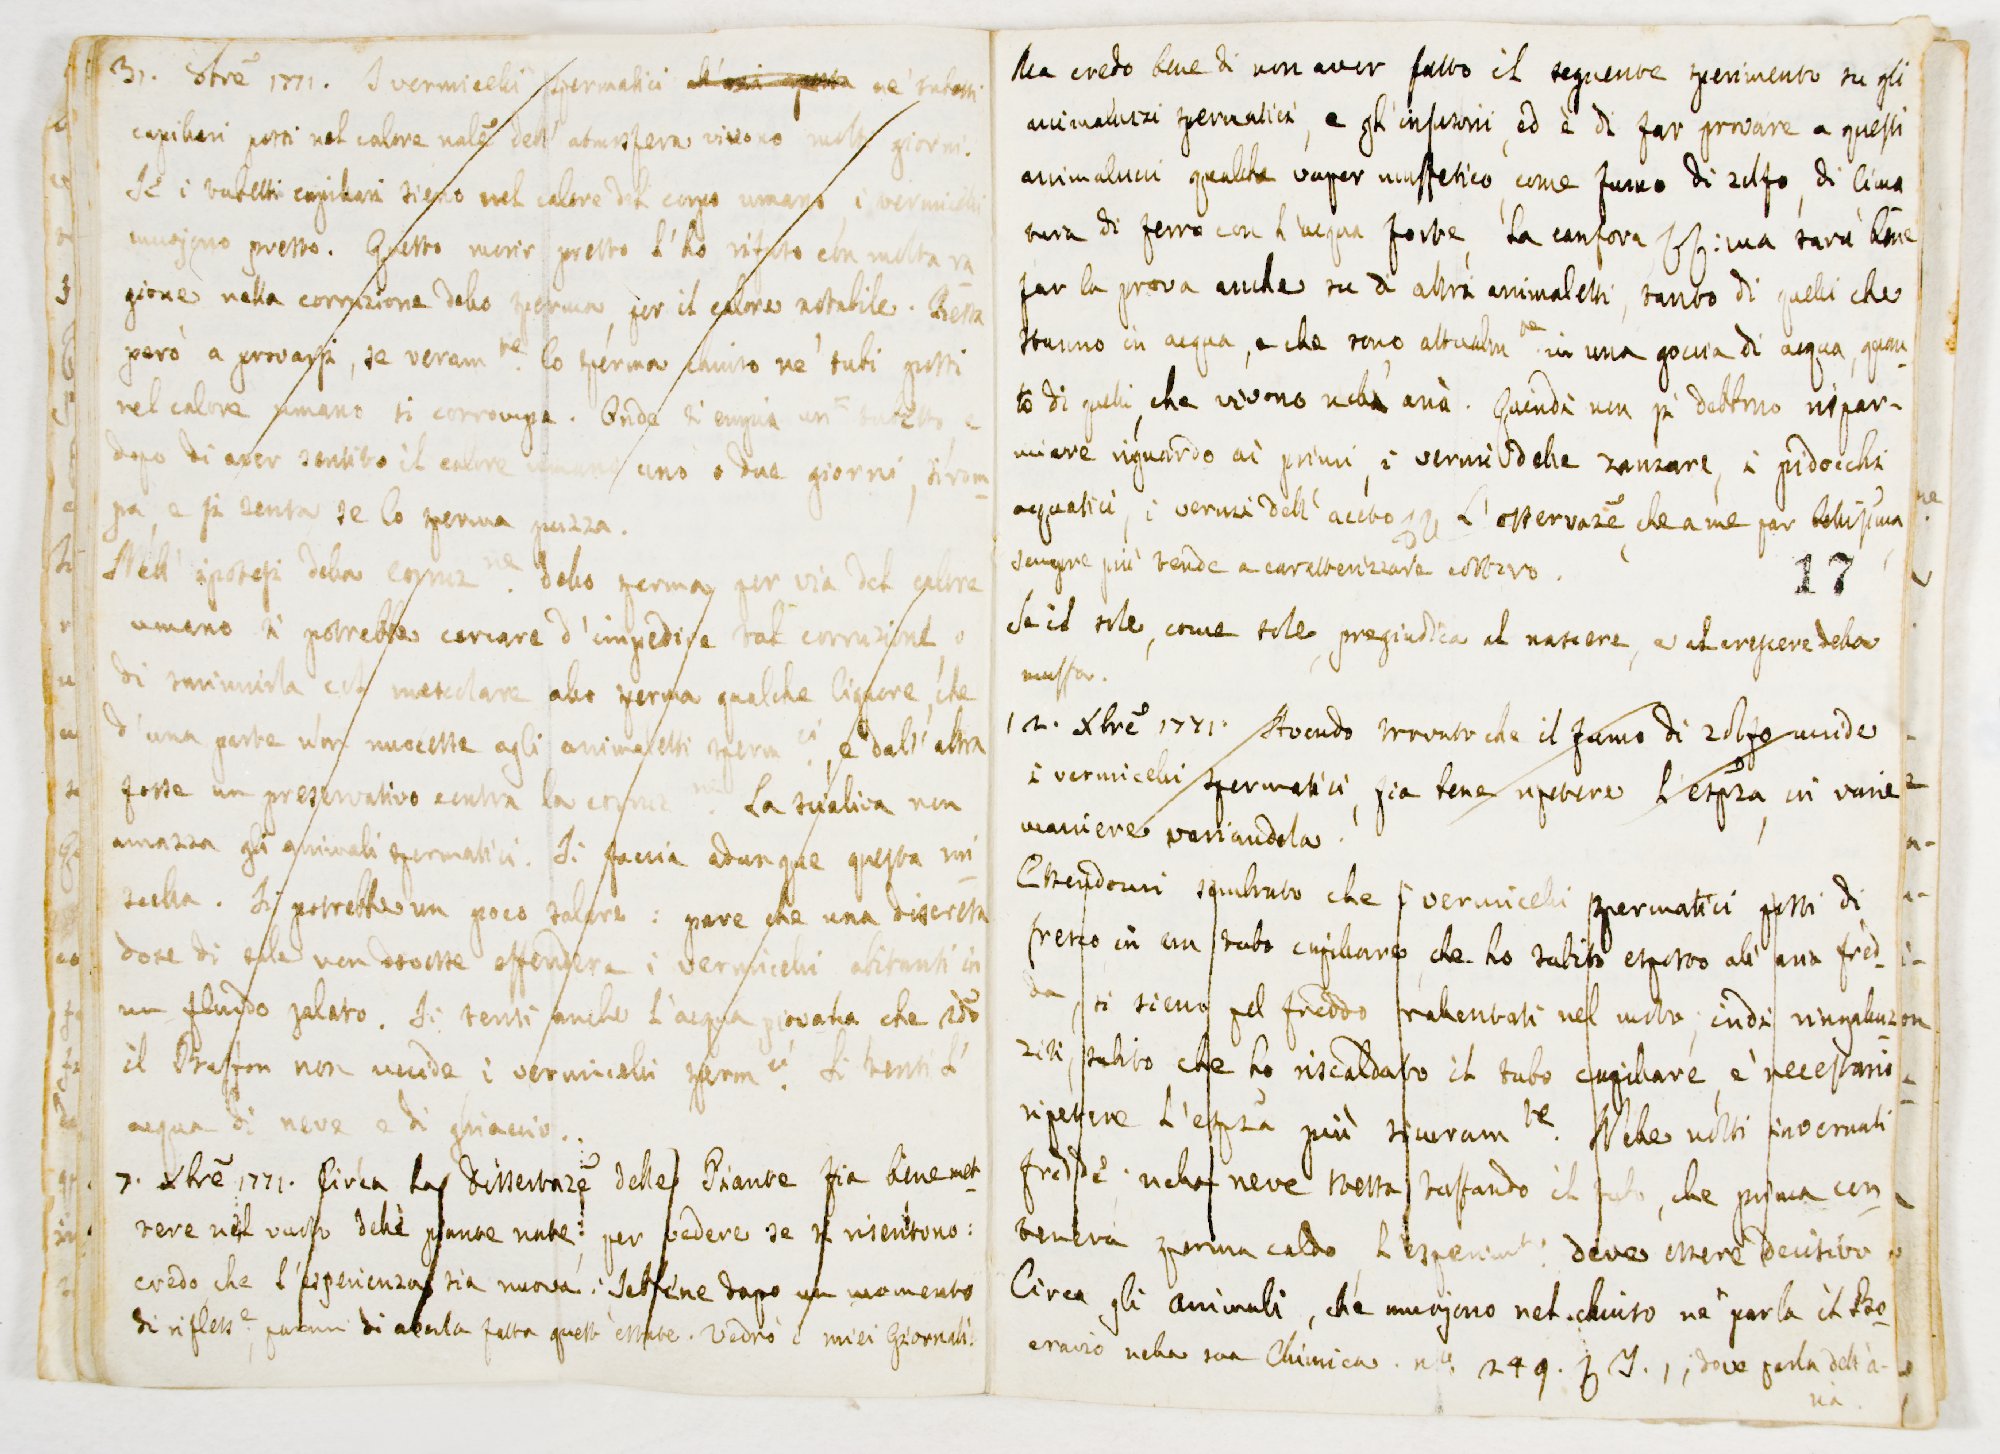 31. 8bre 1771. I vermicelli spermatici ne' tubetti
capillari posti nel calore nale dell' atmosfera vivono molti giorni.
Se i tubetti capillari sieno nel calore del corpo umano, i vermicelli
muojono presto. Questo morir presto l' ho rifuso con molta ra
gione nella corruzione dello sperma, per il calore notabile. Resta
però a provarsi, se veramte lo sperma chiuso ne' tubi posti
nel calore umano si corrompa. Onde si empia un tubetto, e
dopo di aver sentito il calore umano uno o due giorni, si rom-
pa, e si senta se lo sperma puzza.
Nell' ipotesi della corruzne dello sperma per via del calore
umano si potrebbe cercare d' impedire tal corruzione, o
di sminuirla col mescolare allo sperma qualche liquore, che
d' una parte non nuocesse agli animaletti spermci, e dall' altra
fosse un preservativo contra la corruzne. La scialiva non
amazza gli animali spermatici. Si faccia adunque questa mi
scella. Si potrebbe un poco salare: pare che una discreta
dose di sale non dovesse offendere i vermicelli abitanti in
un fluido salato. Si tenti anche l' acqua piovana che
il non uccide i vermicelli spermci. Si tenti l'
acqua di neve e di ghiaccio.
7. Xbre 1771. Circa la Dissertaze delle Piante fia bene met
tere nel vuoto delle piante nate: per vedere se si risentono:
credo che l' esperienza sia nuova: Sebbene dopo un momento
di rifless, parmi di averla fatta quest' estate. Vedrò i miei Giornali.
Ma credo bene di non aver fatto il seguente sperimento su gli
animaluzzi spermatici, e gl' infusorii, ed è di far provare a questi
animalucci qualche vapor muffetico, come fumo di zolfo, di lima
tura di ferro con l' acqua forte, la canfora: ma sarà bene
far la prova anche su di altri animaletti, tanto di quelli che
stanno in acqua, e che sono attualmte in una goccia di acqua, quan-
to di quelli, che vivono nell' aria. Quindi non si debbono rispar-
miare riguardo ai primi, i vermi delle zanzare, i pidocchi
acquatici, i vermi dell' aceto. L' osservaze, che a me par bellissima,
sempre più tende a caratterizzare costoro.
17
Se il sole, come sole, pregiudica al nascere, e al crescere della
muffa.
12. Xbre 1771. Avendo trovato che il fumo di zolfo uccide
i vermicelli spermatici, fia bene ripetere l' espza, in varie
maniere variandola.
Essendomi sembrato che i vermicelli spermatici posti di
fresco in un tubo capillare, che ho subito esposto all' aria fred-
da, si sieno pel freddo rallentati nel moto; indi ringalluz
ziti, subito che ho riscaldato il tubo capillare, è necessario
ripetere l' espza più sicuramte. Nelle notti invernali
fredde; nella neve stessa tuffando il tubo, che prima con
teneva sperma caldo, l' esperimto deve essere decisivo
Circa gli animali, che muojono nel chiuso ne parla il Bo
eravio nella sua Chimica. no. 249. T. 1, dove parla dell' a-
ria.